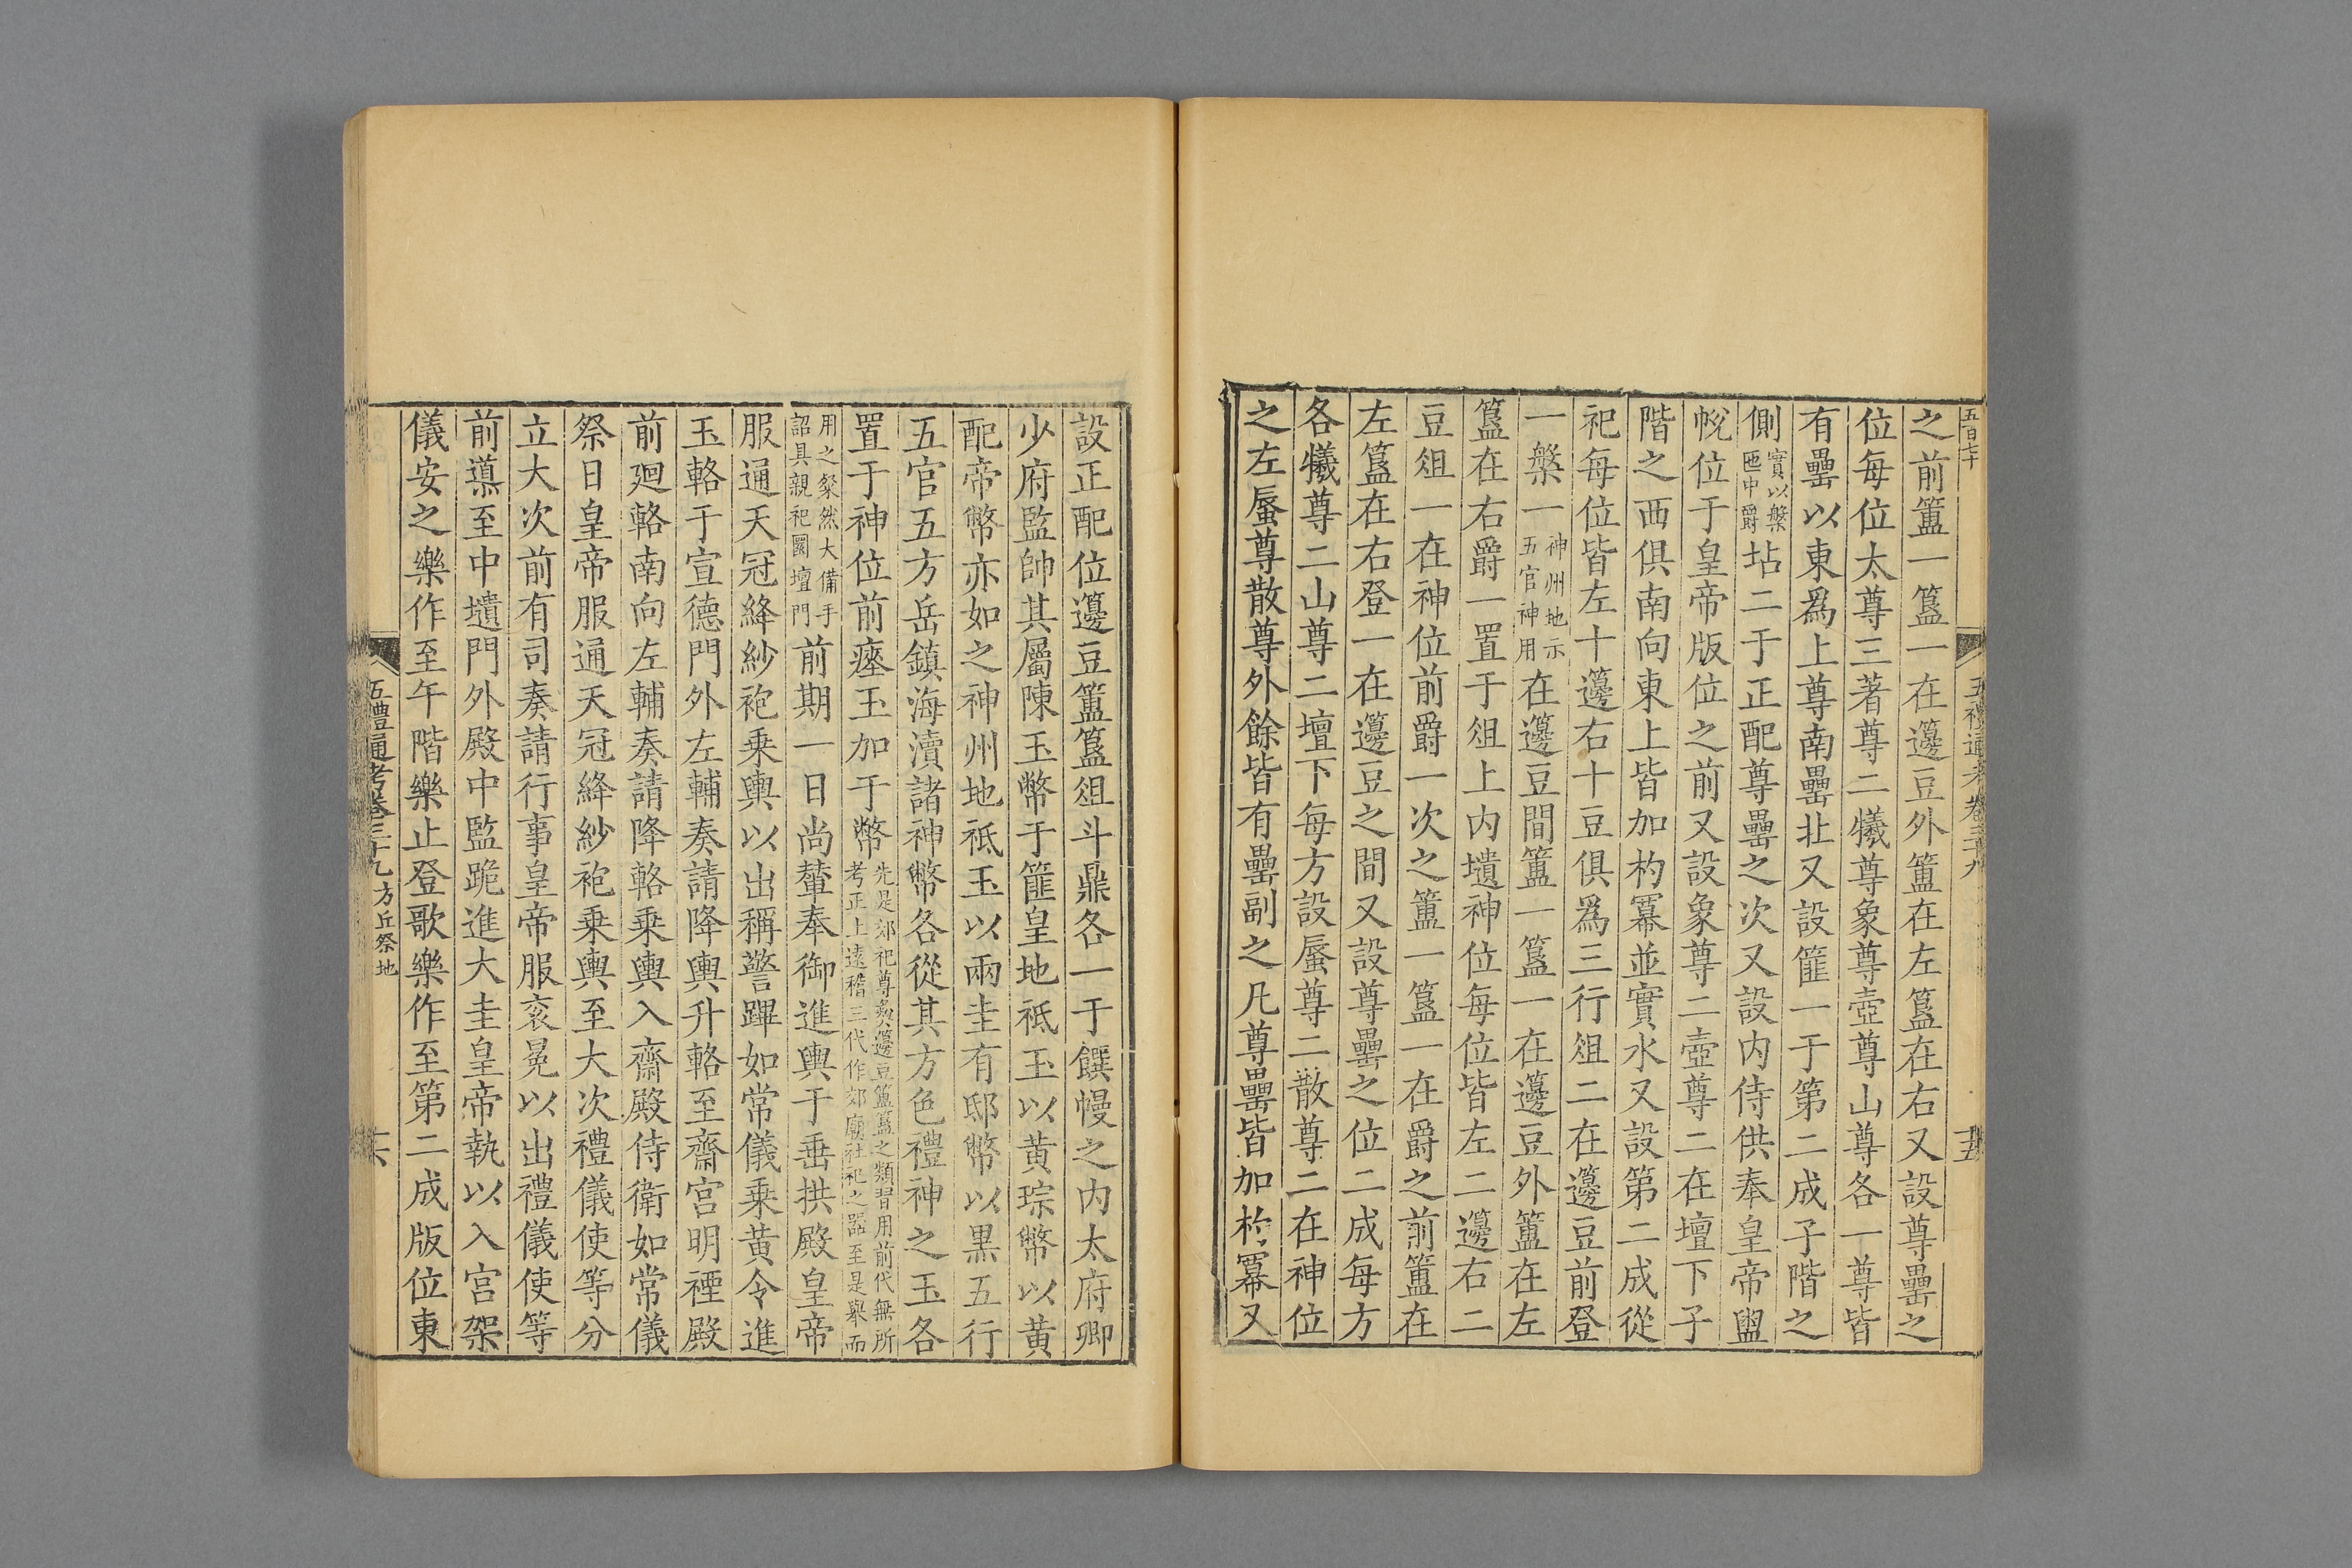 五百七十
五禮通考卷三十九
十五
之前簠一簋一在籩豆外簠在左簋在右又設尊罍之
位每位太尊三著尊二犧尊象尊壺尊山尊各一尊皆
有罍以東爲上尊南罍北又設篚一于第二成子階之
側實以槃匜中爵坫二于正配尊罍之次又設内侍供奉皇帝盥
帨位于皇帝版位之前又設象尊二壺尊二在壇下子
階之西俱南向東上皆加杓冪並實水又設第二成從
祀每位皆左十籩右十豆俱爲三行俎二在籩豆前登
一槃一神州地示五官神用在籩豆間簠一簋一在籩豆外簠在左
簋在右爵一置于俎上内壝神位每位皆左二籩右二
豆俎一在神位前爵一次之簠一簋一在爵之前簠在
左簋在右登一在籩豆之間又設尊罍之位二成每方
各犧尊二山尊二壇下每方設蜃尊二散尊二在神位
之左蜃尊散尊外餘皆有罍副之凡尊罍皆加杓冪又
設正配位籩豆簠簋俎斗鼎各一于饌幔之内太府卿
少府監帥其屬陳玉幣于篚皇地祗玉以黄琮幣以黄
配帝幣亦如之神州地祗玉以兩圭有邸幣以黒五行
五官五方岳鎮海瀆諸神幣各從其方色禮神之玉各
置于神位前瘞玉加于幣先是郊祀尊爵籩豆簠簋之類習用前代無所考正上遠稽三代作郊廟社祀之器至是舉而
用之粲然大備手詔具親祀圜壇門前期一日尚輦奉御進輿于垂拱殿皇帝
服通天冠絳紗袍乗輿以出稱警蹕如常儀乗黄令進
玉輅于宣德門外左輔奏請降輿升輅至齋宫明禋殿
前廻輅南向左輔奏請降輅乗輿入齋殿侍衛如常儀
祭日皇帝服通天冠絳紗袍乗輿至大次禮儀使等分
立大次前有司奏請行事皇帝服衮冕以出禮儀使等
前導至中壝門外殿中監跪進大圭皇帝執以入宫架
儀安之樂作至午階樂止登歌樂作至第二成版位東
五禮通考卷三十九 方丘祭地
十六